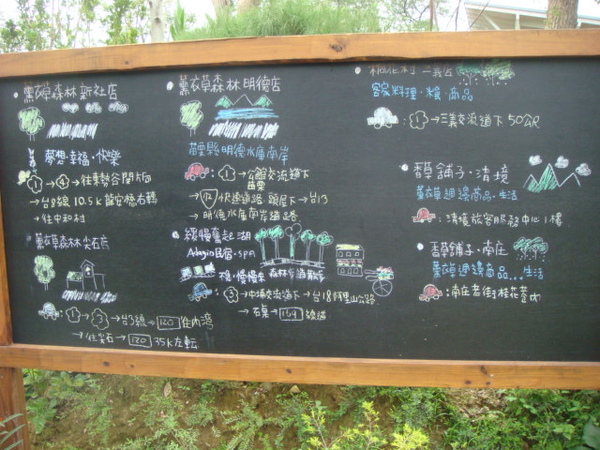 薰衣草森林 新社店
夢想·幸福·快樂
①→④→往東勢谷關
→台8線 10.5K 龍安橋右轉
→往中和村
薰衣草森林 尖石店
①→③→台3線→120往內灣
→往尖石→120 35K左転
薰衣草森林 明德店
苗栗縣明德水庫南岸
①→公館交流道下
苗栗
→72快速道路 頭屋下→台13
→明德水庫南岸道路
緩慢奮起湖
Adagio民宿·spa
森林步道散步
③→中埔交流道下→台18阿里山公路
→石桌→159
桐花村 三義店
客家料理·糧·商品
:①→三義交流道下50公尺
香草舖子·清境
薰衣草週邊商品·生活
:清境旅客服務中心1樓
香草舖子·南庄
薰衣草週邊商品...生活
:南庄老街桂花巷內